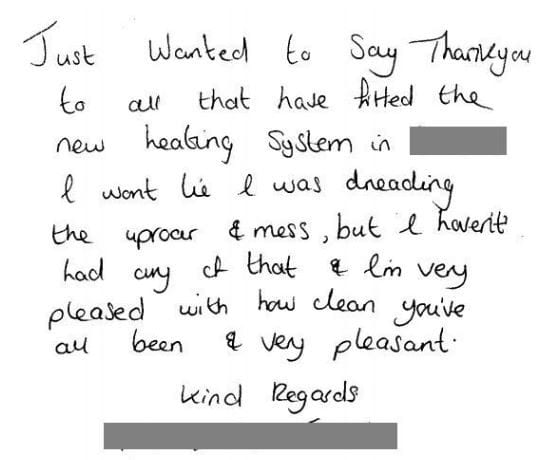 Just Wanted to Say Thankyou
to all that have fitted the
new heating System in
I wont lie I was dreading
the uproar & mess, but I haven't
had any of that & I'm very
pleased with how clean you've
all been & very pleasant.
Kind Regards